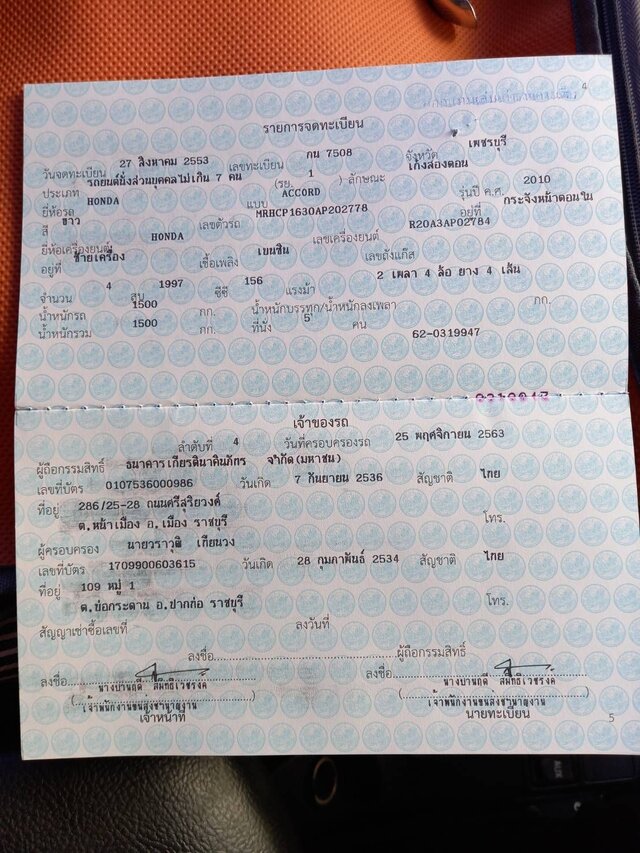 4
รายการจดทะเบียน
วันจดทะเบียน 27 สิงหาคม 2553 เลขทะเบียน กน 7508 จังหวัด เพชรบุรี
ประเภท รถยนต์นั่งส่วนบุคคลไม่เกิน 7 คน (รย. 1 ) ลักษณะ เก๋งสองตอน
ยี่ห้อรถ HONDA แบบ ACCORD รุ่นปี ค.ศ. 2010
สี ขาว เลขตัวรถ MRHCP1630AP202778 อยู่ที่ กระจังหน้าตอนใน
ยี่ห้อเครื่องยนต์ HONDA เลขเครื่องยนต์ R20A3AP02784
อยู่ที่ ซ้ายเครื่อง เชื้อเพลิง เบนซิน เลขถังแก๊ส
จำนวน 4 สูบ 1997 ซีซี 156 แรงม้า 2 เพลา 4 ล้อ ยาง 4 เส้น
น้ำหนักรถ 1500 กก. น้ำหนักบรรทุก/น้ำหนักลงเพลา กก.
น้ำหนักรวม 1500 กก. ที่นั่ง 5 คน
62-0319947
เจ้าของรถ
ลำดับที่ 4 วันที่ครอบครองรถ 25 พฤศจิกายน 2563
ผู้ถือกรรมสิทธิ์ ธนาคารเกียรตินาคินภัทร จำกัด(มหาชน)
เลขที่บัตร 0107536000986 วันเกิด 7 กันยายน 2536 สัญชาติ ไทย
ที่อยู่ 286/25-28 ถนนศรีสุริยวงศ์
ต.หน้าเมือง อ.เมือง ราชบุรี โทร.
ผู้ครอบครอง นายวราวุฒิ เกียนวง
เลขที่บัตร 1709900603615 วันเกิด 28 กุมภาพันธ์ 2534 สัญชาติ ไทย
ที่อยู่ 109 หมู่ 1
ต.บ่อกระดาน อ.ปากท่อ ราชบุรี โทร.
สัญญาเช่าซื้อเลขที่ ลงวันที่
ลงชื่อ ผู้ถือกรรมสิทธิ์
ลงชื่อ ลงชื่อ
เจ้าพนักงานขนส่งชำนาญงาน เจ้าพนักงานขนส่งชำนาญงาน
เจ้าหน้าที่ นายทะเบียน
5